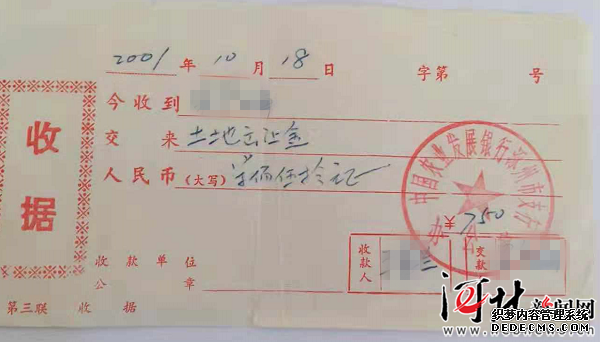 2001 年 10 月 18 日 字第 号
今收到
交来 土地出让金
人民币 (大写) 柒佰伍拾元
¥ 750
中国农业发展银行涿州市支行
办公室
收据
收款单位
公章
收款人
交款
第三联 收据
河北新闻网
织梦内容管理系统
DEDECMS.COM